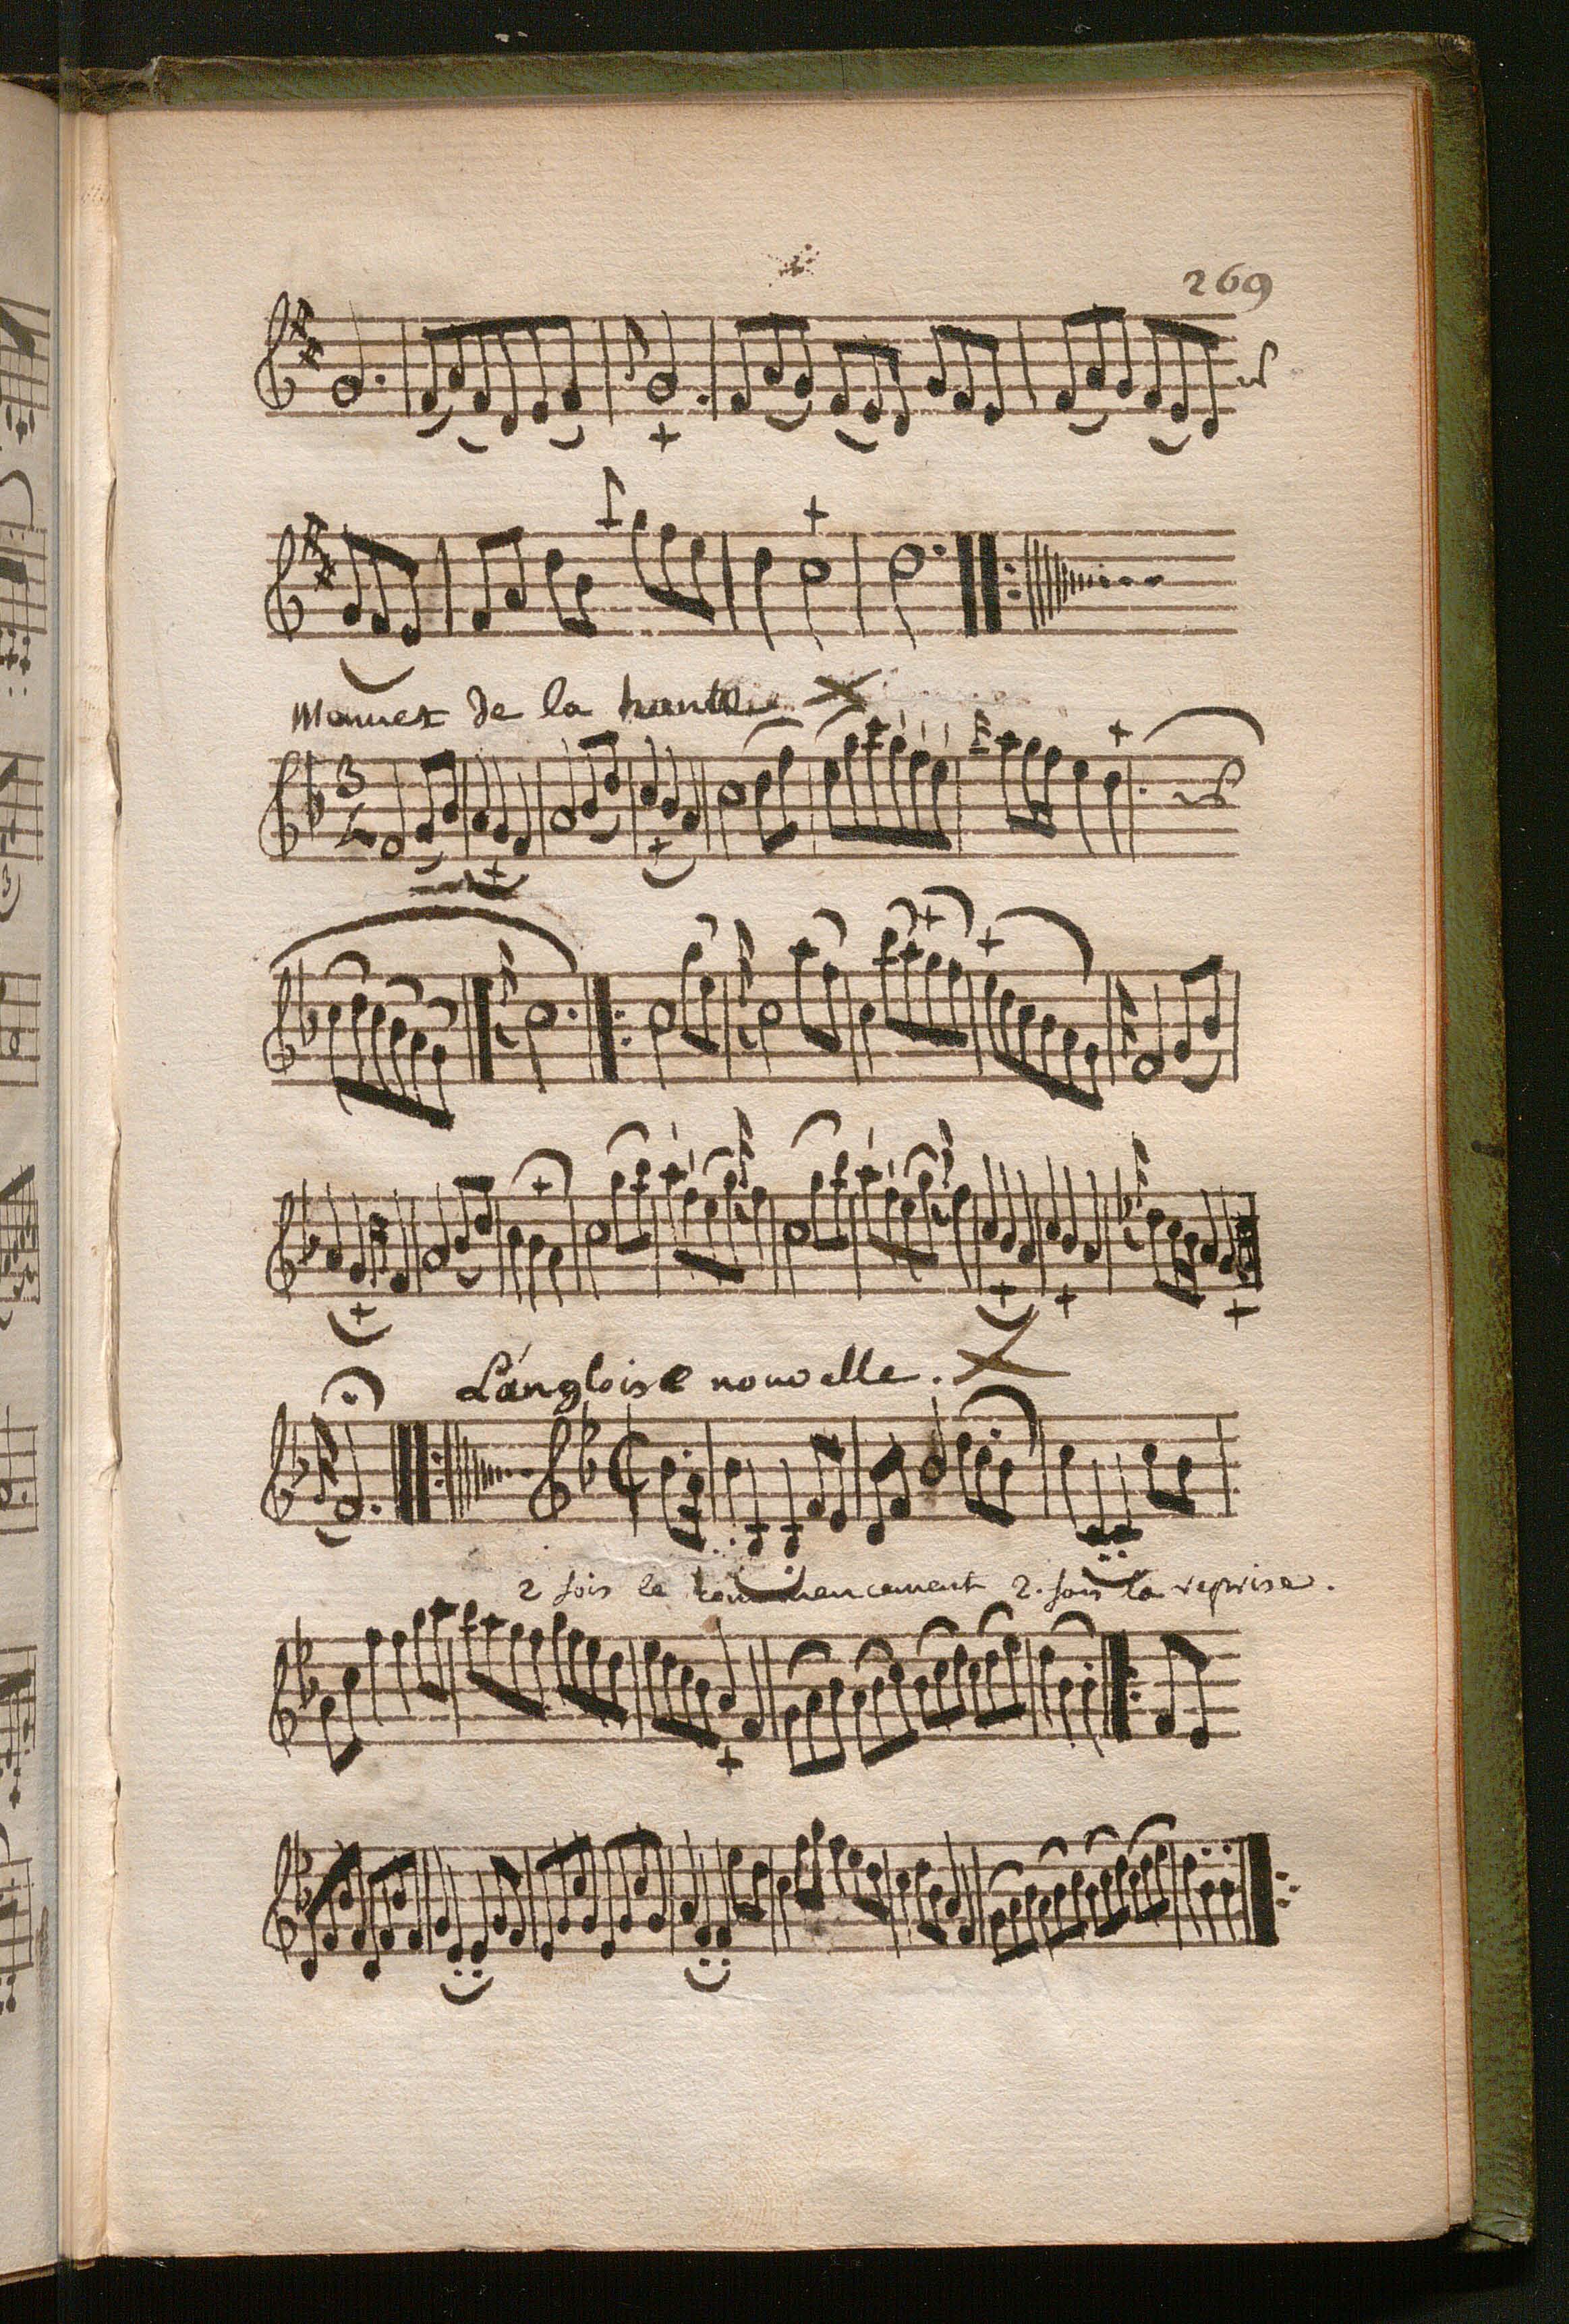 269
Menuet de la
L'angloise nouvelle.
2 fois le commencement 2. fois la reprise.